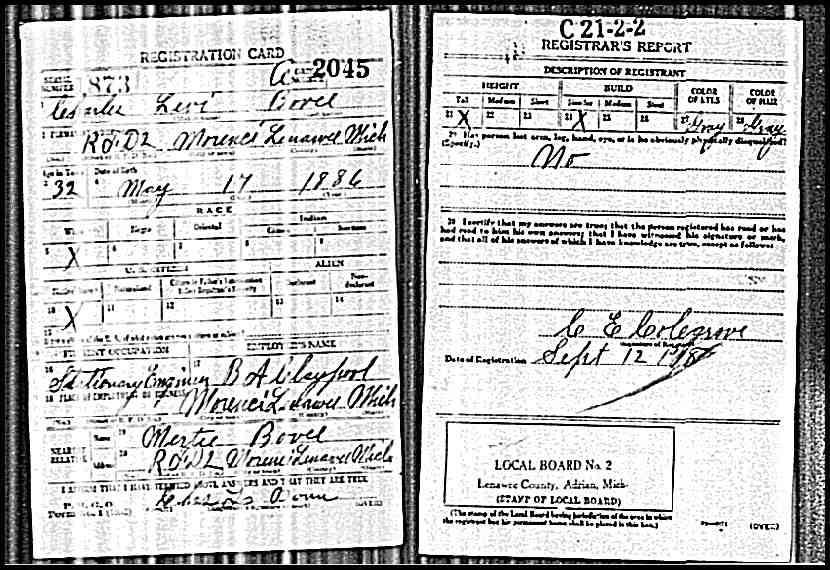 REGISTRATION CARD
SERIAL NUMBER 1873
A 2045
Charlie Levi Bovee
R.F.D 2 Morenci Lenawee Mich
Age in Date of Birth
32 May 17 1886
RACE
Indian
White Negro Oriental
X
U. S. CITIZEN ALIEN
X
PRESENT OCCUPATION EMPLOYER'S NAME
Stationary Engineer B A Claypool
PLACE OF EMPLOYMENT OR BUSINESS
Morenci Lenawee Mich
NEAREST RELATIVE
Name Mertie Bovee
Address R.F.D 2 Morenci Lenawee Mich
I AFFIRM THAT I HAVE VERIFIED ABOVE ANSWERS AND THAT THEY ARE TRUE
P. M. G. O.
Form No. 1
(OVER)
C 21-2-2
REGISTRAR'S REPORT
DESCRIPTION OF REGISTRANT
HEIGHT BUILD COLOR OF EYES COLOR OF HAIR
Tall Medium Short Slender Medium Stout
21 X 22 23 24 X 25 26 27 Gray 28 Gray
29 Has person lost arm, leg, hand, eye, or is he obviously physically disqualified?
(Specify.)
No
30 I certify that my answers are true; that the person registered has read or has
had read to him his own answers; that I have witnessed his signature or mark,
and that all of his answers of which I have knowledge are true, except as follows:
C E Colegrove
Date of Registration Sept 12 1918
LOCAL BOARD No. 2
Lenawee County, Adrian, Mich
(STAFF OF LOCAL BOARD)
(The stamp of the Local Board having jurisdiction of the area in which
the registrant has his permanent home shall be placed in this box.)
(OVER)